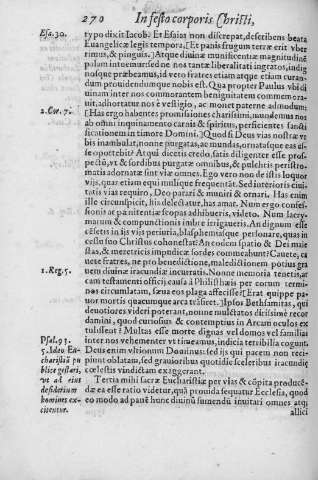 270 In festo corporis Christi,
Esa.30. typo dixit Iacob. Et Esaias non discrepat, describens beata
Euangelicæ legis tempora, [Et panis frugum terræ erit vber
rimus, & pinguis.] Atque diuinæ munificentiæ magnitudinē
palam intuemur: sed ne nos tantæ liberalitati ingratos, indig
nosque præbeamus, id vero fratres etiam atque etiam curan
dum prouidendumque nobis est. Qua propter Paulus vbi di
uinam inter nos commorantem benignitatem commemora
uit, adhortatur nos è vestigio, ac monet paterne admodum:
2.Cor.7. [Has ergo habentes promissiones charissimi, mundemus nos
ab omni inquinamento carnis & spiritus, perficientes sancti
ficationem in timore Domini.] Quod si Deus vias nostras ve
bis inambulat, nonne purgatas, ac mundas, ornatasque eas es
se oportebit? Atqui dicetis credo satis diligenter esse prospe
ctū, vt & sordibus purgatæ omnibus, & pulchris peristro-
matis adornatæ sint viæ omnes. Ego vero non de istis loquor
vijs, quæ etiam equi mulique frequentāt. Sed interioris ciui
tatis vias requiro, Deo pasfari & muniri & ornari. Has enim
ille circunspicit, his delectatur, has amat. Num ergo confes-
sionis ac pænitentiæ scopas adhibueris, videto. Num lacry-
marum & compunctionis imbre irrigaueris. An dignum esse
cēsetis in ijs vijs periuria, blasphemiasque personare, quas in
cessu suo Christus cohonestat? An eodem spatio & Dei maie
stas, & meretricis impudicæ sordes commeabunt? Cauete, ca
uete fratres, ne pro benedictione, maledictionem potius gra
1.Reg.5. uem diuinæ iracundiæ incurratis. Nonne memoria tenetis, ar
cam testamenti officij causa à Philisthæis per eorum termi-
nos circumlatam, sæua eos plaga affecisse? [Erat quippe pa-
uor mortis quacumque arca trāsiret.] Ipsos Bethsamitas, qui
deuotiores videri poterant, nonne mulctatos dirissime recor
damini, quod curiosius & contemptius in Arcam oculos ex
tulissent? Multas esse morte dignas vel domos vel familias
inter nos vehementer vt timeamus, indicia terribilia cogunt.
Psal.93. Deus enim vltionum Dominus: sed ijs qui pacem non reci-
5. Ideo Eu- piunt oblatam, sed grauioribus quotidie sceleribus iracundię
charistiā pu cœlestis vindictam exaggerant.
blice gestari, Tertia mihi sacræ Eucharistiæ per vias & cōpita producē-
vt ad eius dæ ea esse ratio videtur, quā prouida sequatur Ecclesia, quod
desiderium eo modo ad panē hunc diuinū sumendū inuitari omnes atq;
homines ex- allici
citentur.